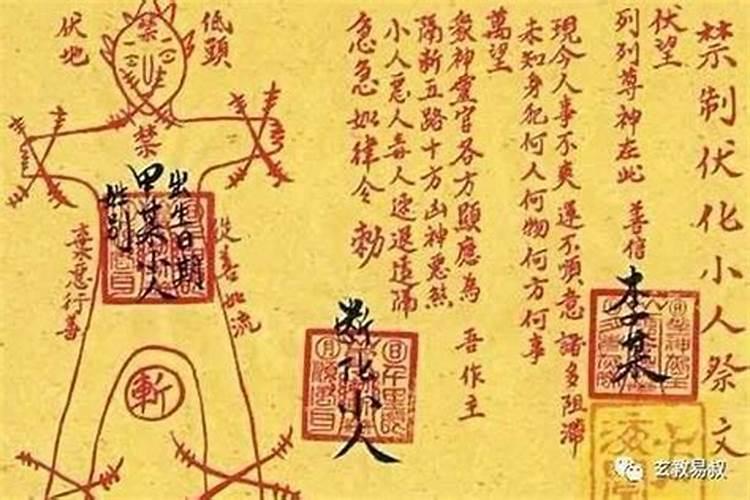 禁制伏化小人祭文
伏望
列列尊神在此 善信
李某
現今人事不爽運不順意諸多阻滯
未知身犯何人何物何方何事
萬望
眾神靈官各方顯應為 吾作主
隔斷五路十方凶神惡煞
小人惡人毒人速退遠隔
急急如律令 勅
斷化小人
低頭
禁
伏地
禁
出生日期
甲某小人
姓别
從善如流
棄惡行善
斬
玄教易叔